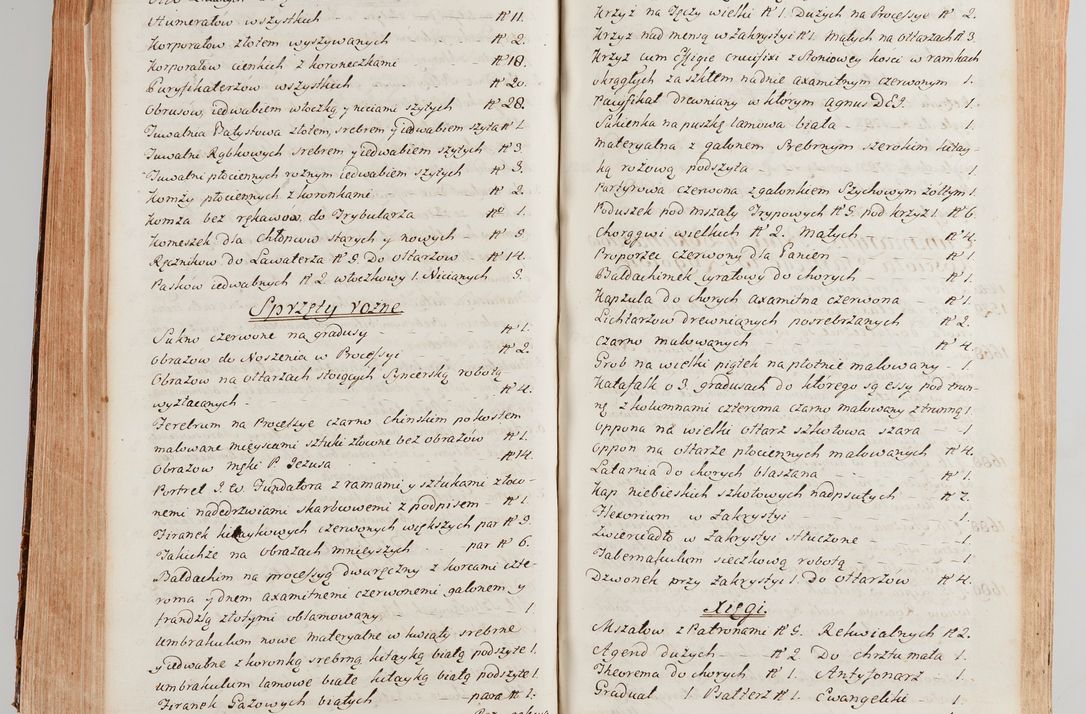 Humerałow wszystkich N° 11.
Korporałow złotem wyszywanych N° 2.
Korporałow cienkich z koroneczkami N° 18.
Puryfikaterzow wszystkich N° 20.
Obrusow, iedwabiem włoczką y niciami szytych N° 28.
Tuwalnia Batystowa złotem, srebrem y iedwabiem szyta N° 1
Tuwalni Rąbkowych srebrem y iedwabiem szytych N° 3
Tuwalni płociennych rożnym iedwabiem szytych N° 3.
Komży płociennych z koronkami N° 2.
Komża bez rękawow do Trybularza N° 1.
Komeszek dla Chłopcow starych y nowych N° 8
Ręcznikow do Lawaterza N° 9. Do ołtarzow N° 14.
Paskow iedwabnych N° 2 włoczkowy 1. Nicianych 8.
Sprzęty rożne
Sukno czerwone na gradusy N° 1.
Obrazow do Noszenia w Processyi N° 2.
Obrazow na ołtarzach stoiących Syncerską robotą
wyzłacanych N° 4.
Feretrum na Processye czarno Chinskim pokostem
malowane mieyscami sztuki złocone bez obrazow N° 1.
Obrazow męki P. Jezusa N° 14.
Portret J. W. Fundatora z ramami y sztukami złoco-
nemi nadedrzwiami skarbcowemi z podpisem N° 1
Firanek kitaykowych czerwonych większych par N° 9.
Takichże na obrazach mnieyszych par N° 6.
Baldachim na processyą dwuręczny z korcami czte-
roma y dnem axamitnemi czerwonemi galonem y
frandzlą złotymi oblamowany 1.
Umbrakulum nowe materyalne w kwiaty srebrne
y iedwalne z koronką srebrną kitayką białą podszyte 1.
umbrakulum lamowe białe kitayką białą podszyte 1
Firanek Gazowych białych para N° 1.
Krzyż na Tęczy wielki N° 1. Dużych na Processye N° 2.
Krzyż nad mensą w Zakrystyi N° 1. Małych na ołtarzach N° 3
Krzyż cum Effigie crucifixi z słoniowey kosci w ramkach
okrągłych za szkłem na dnie axamitnym czerwonym 1.
Pacyfikał drewniany w ktorym agnus DEI. 1.
Sukienka na puszkę lamowa biała 1.
materyalna z galonem Srebrnym szerokim kitay-
ką rożową podszyta 1.
Partyrowa czerwona z galonkiem Szychowym żołtym 1.
Poduszek pod mszały Trypowych N° 5. pod krzyż 1. N° 6.
Chorągwi wielkich N° 2. Małych N° 4.
Proporzec czerwony dla Panien N° 1.
Baldachimek cyratowy do chorych N° 1.
Kapzula do chorych axamitna czerwona N° 1.
Lichtarzow drewnianych posrebrzanych N° 2.
czarno malowanych N° 4.
Grob na wielki piątek na płotnie malowany 1.
Katafalk o 3. gradusach do ktorego są essy pod trun-
nę z kolumnami czteroma czarno malowany z trunną 1.
Oppona na wielki ołtarz szkotowa szara 1
Oppon na ołtarze płociennych malowanych N° 4.
Latarnia do chorych blaszana N° 1.
Kap niebieskich szkotowych nadpsutych N° 7.
Flexorium w Zakrystyi 1.
Zwierciadło w Zakrystyi stłuczone 1.
Tabernakulum sieczkową robotą 1.
Dzwonek przy Zakrystyi 1. Do ołtarzow N° 4.
Xięgi.
Mszałow z Patronami N° 9. Rekwialnych N° 2.
Agend dużych N° 2 Do chrztu mała 1.
Theorema do chorych N° 1. Antyfonarz 1.
Graduał 1 Psałterz N° 1. Ewangeliki 1.